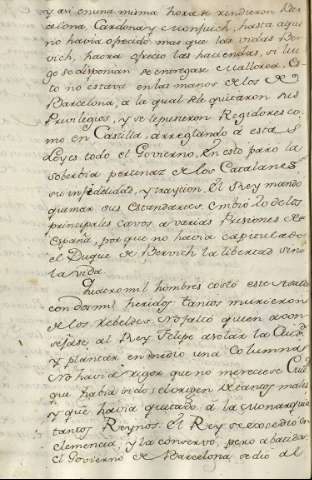 y asi en una misma hora se rindieron Bar
celona, Cardona, y Monjuich, hasta aqui
no havia ofrecido mas que las vidas Ber
vich, haora ofrecio las haciendas, si lue
go se disponian se entregase Mallorca. Es
to no estava en las manos de los de
Barcelona, a la qual se le quitaron sus
Privilegios, y se le pusieron Regidores co
mo en Castilla, arreglando à estas
Leyes todo el Govierno. En esto paró la
sobervia pertinaz de los Catalanes
su infidelidad, y traycion. El Rey mandó
quemar sus Estandartes. Embió los de los
principales cavos à varias Prisiones de
España, por que no havia capitulado
el Duque de Bervich la libertad sino
la vida.
Quatro mil hombres costó este sitio
con dos mil heridos tantos murieron
de los rebeldes. No faltó quien acon
sejase, al Rey Felipe asolar la Ciudd.
y plantar en medio una Columna
No havia rigor que no mereciese Ciud
que havia sido el origen de tantos males
y que havia quitado à la Monarquia
tantos Reynos: El Rey se excedio en
clemencia, y la conservó, pero abatida:
el Govierno de Barcelona se dió al